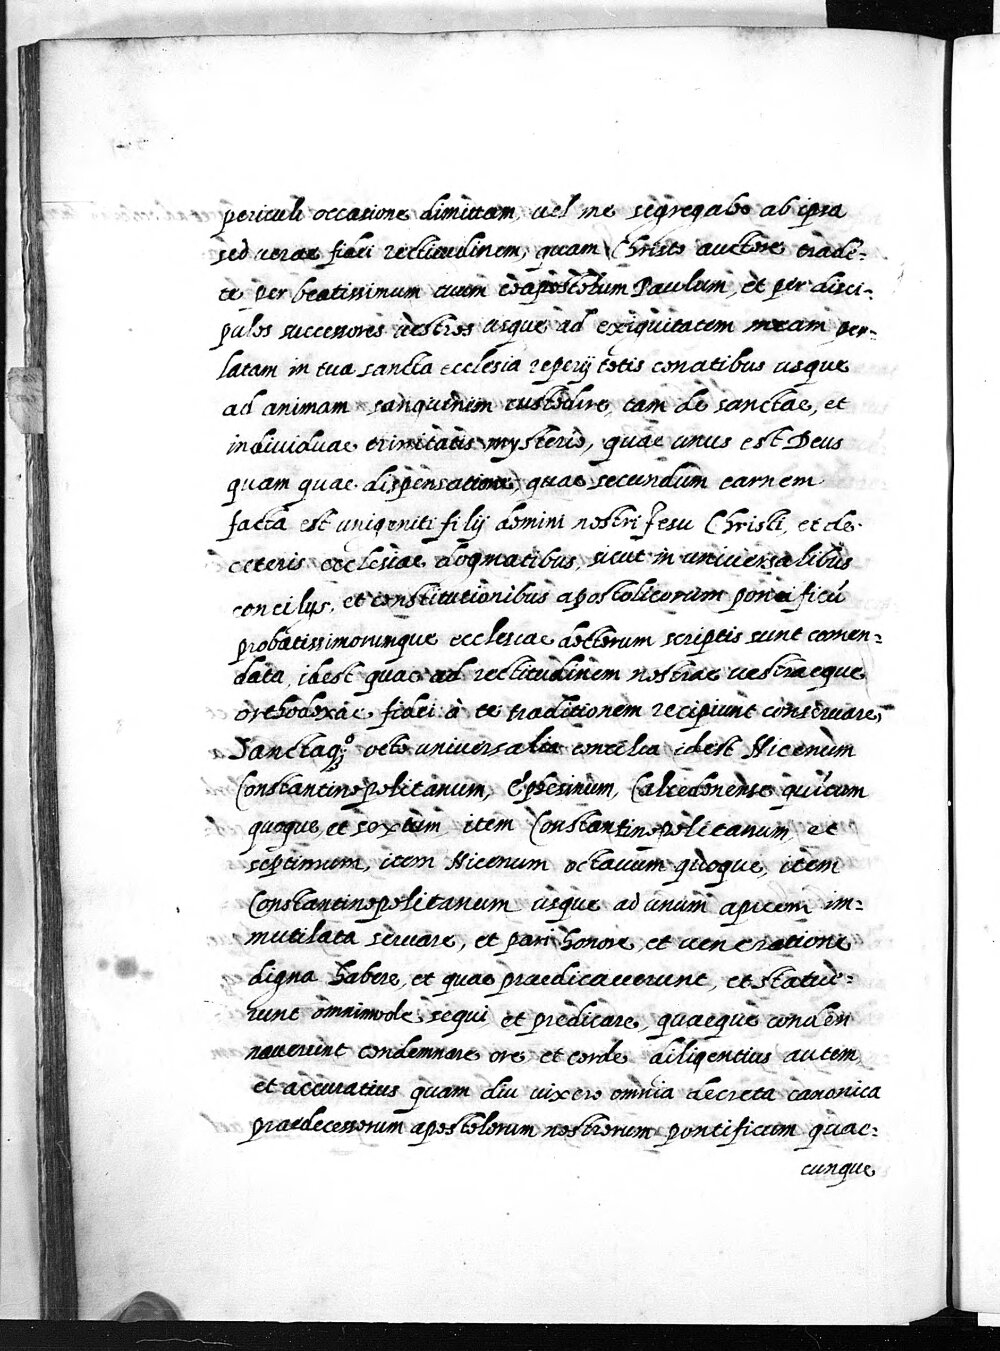 periculi occasione dimittam, uel me segregabo ab ipsa
sed uerae fidei rectitudinem, quam Christo auctore trade-
te per beatissimum tuum coapostolum Paulum, et per disci-
pulos successores uestros usque ad exiguitatem meam per-
latam in tua sancta ecclesia reperij totis conatibus usque
ad animam, sanguinem custodire, tam de sanctae, et
indiuiduae trinitatis mysterio, quae unus est Deus
quam quae dispensatione, quae secundum carnem
facta est unigeniti filij domini nostri Jesu Christi, et de
ceteris ecclesiae dogmatibus, sicut in uniuersalibus
concilijs, et constitutionibus apostolicorum pontificũ
probatissimorumque ecclesiae doctorum scriptis sunt comen-
data, idest quae ad rectitudinem nostrae uestraeque
orthodoxae fidei à te traditionem recipiunt conseruare,
Sanctaq; octo uniuersalia concilia idest Nicenum
Constantinopolitanum, Ephesinum, Calcedonense quintum
quoque, et sextum item Constantinopolitanum, et
septimum, item Nicenum octauum quoque, item
Constantinopolitanum usque ad unum apicem im-
mutilata seruare, et pari honore, et ueneratione
digna habere, et quae praedicauerunt, et statue-
runt omnimode sequi et predicare, quaeque condem
nauerunt condemnare ore et corde, diligentius autem
et accuratius quam diu uixero omnia decreta canonica
praedecessorum apostolorum nostrorum pontificum quae-
cunque